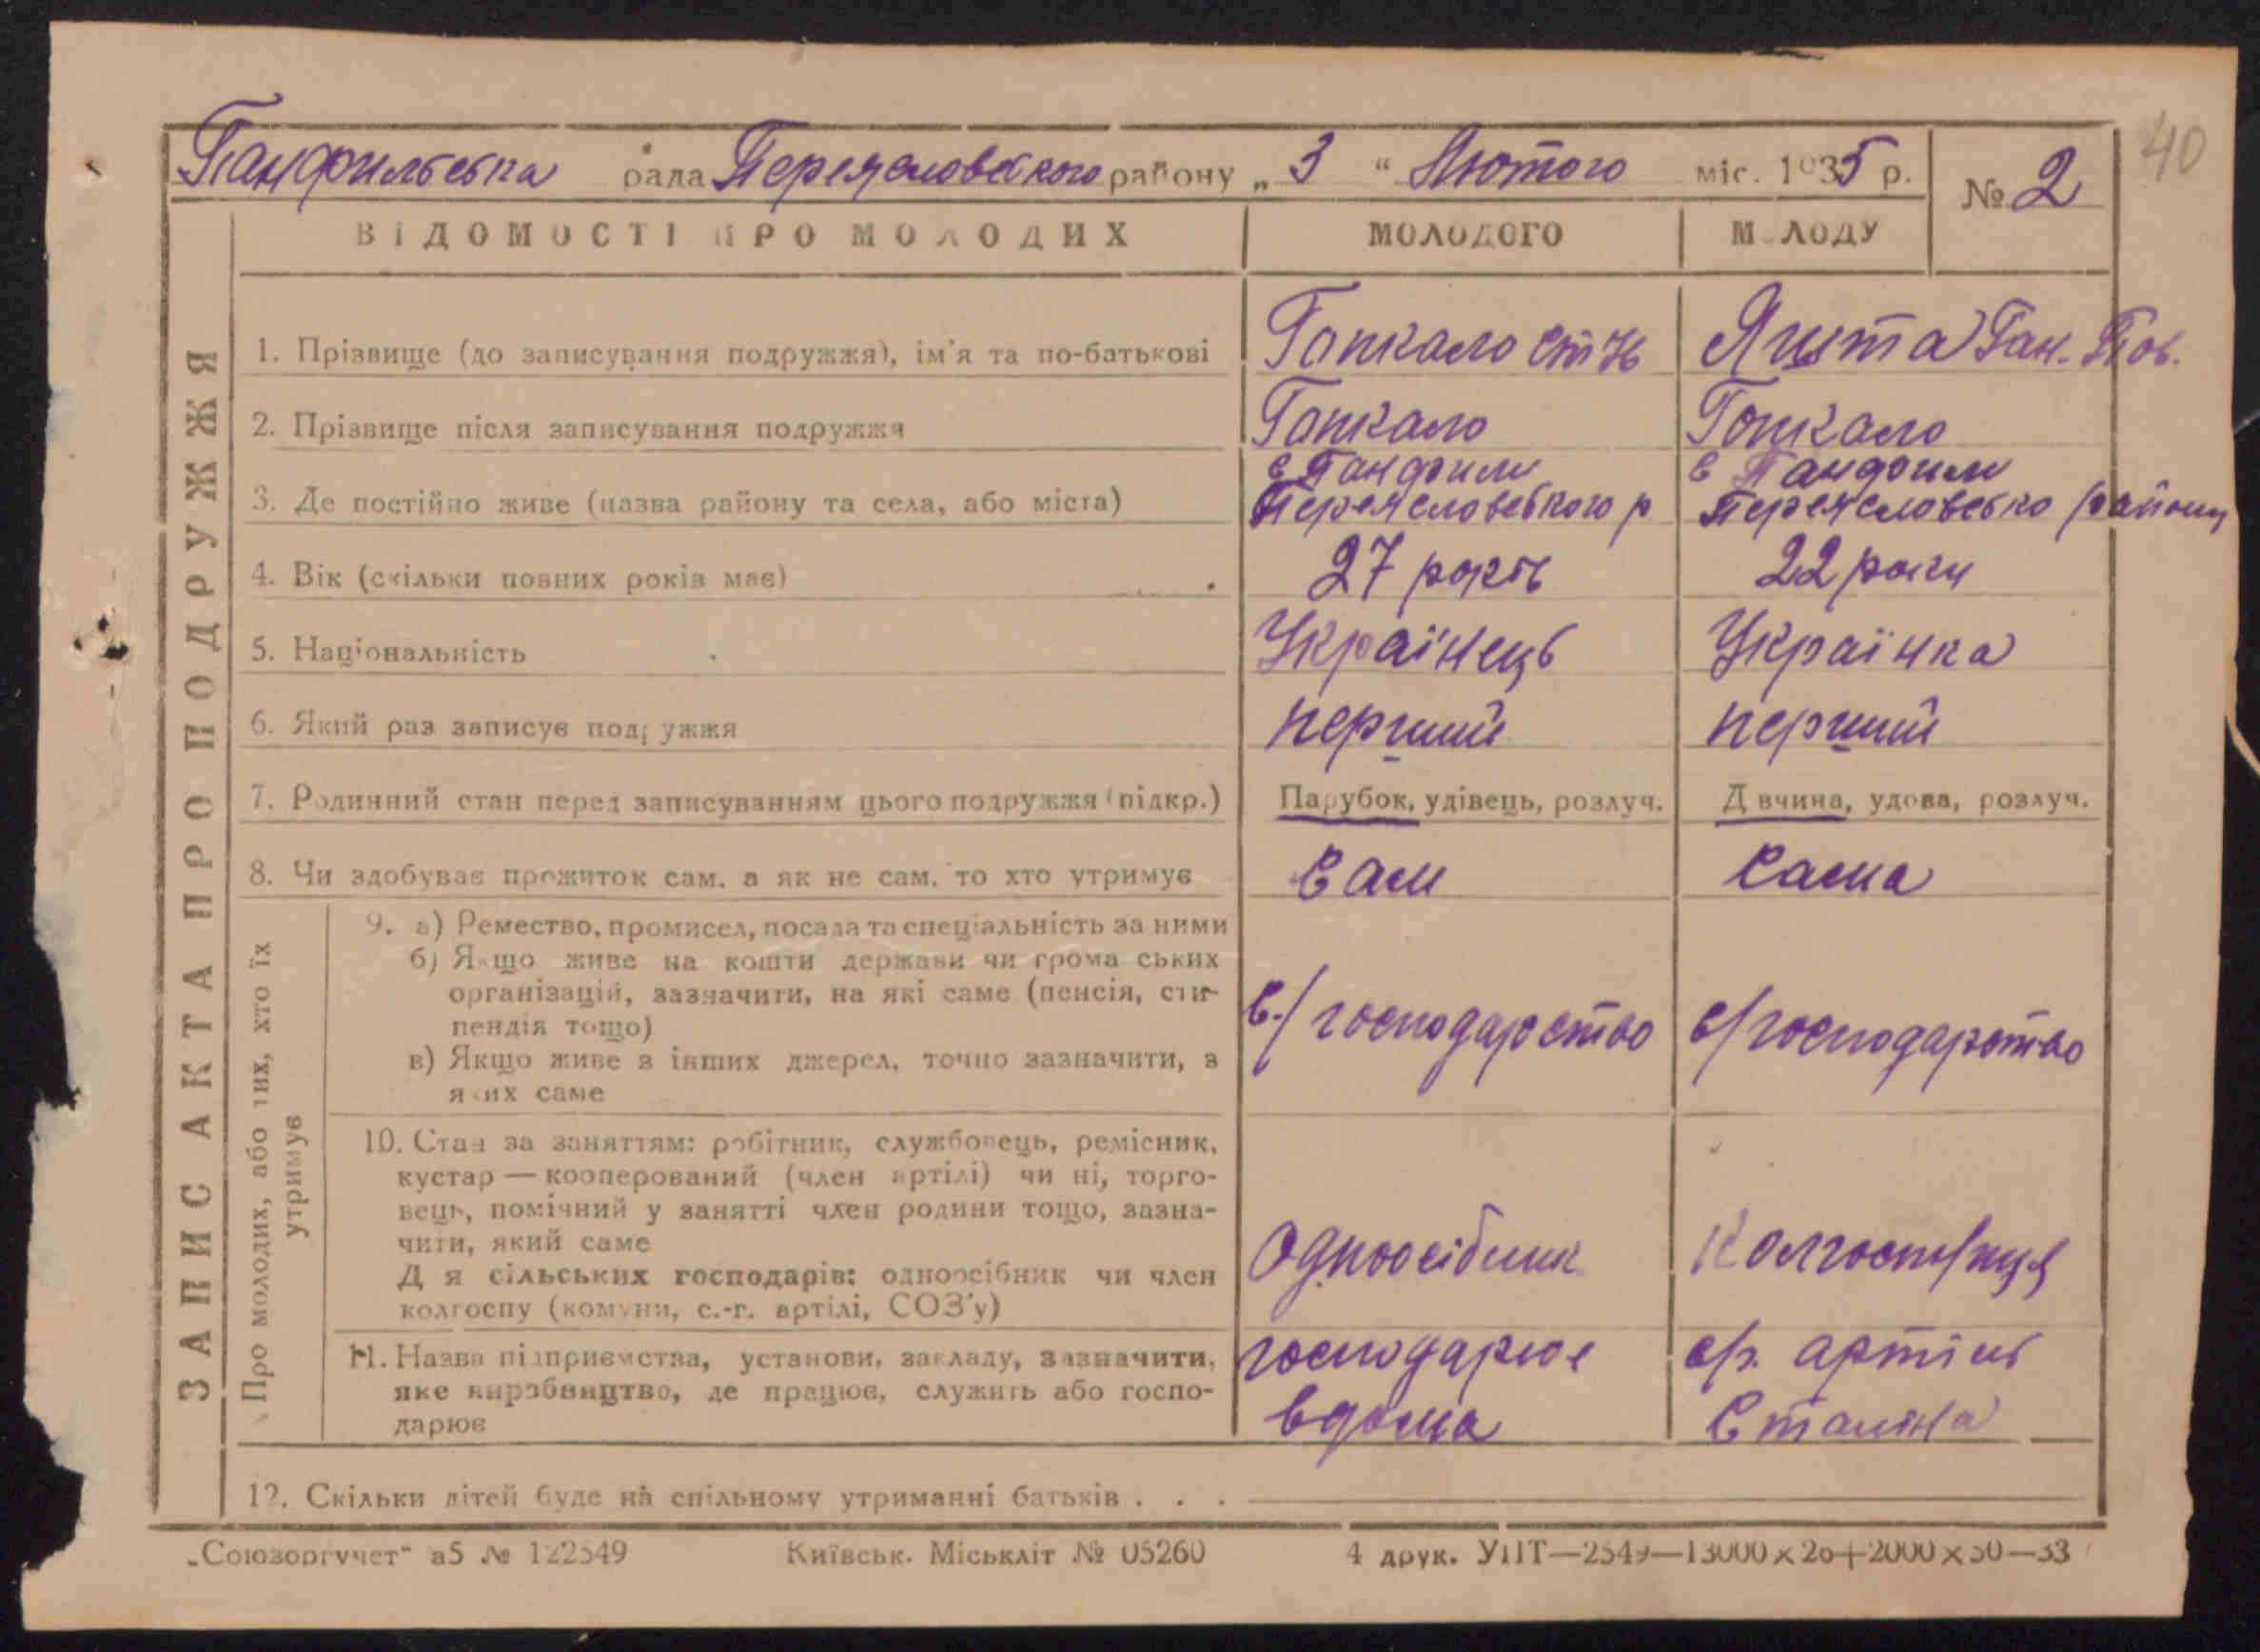 40
Панфильська рада Переяславського району „ 3 “ Лютого міс. 1935 р. № 2
ЗАПИС АКТА ПРО ПОДРУЖЖЯ
ВІДОМОСТІ ПРО МОЛОДИХ МОЛОДОГО МОЛОДУ
1. Прізвище (до записування подружжя), ім'я та по-батькові Гапкало Ст Н Яцюта Ган. Пов.
2. Прізвище після записування подружжя Гапкало Гопкало
с Панфили с Панфили
3. Де постійно живе (назва району та села, або міста) Переясловського р Переясловсько району
4. Вік (скільки повних років має) 27 років 22 роки
5. Національність Українець Українка
6. Який раз записує подружжя перший перший
7. Родинний стан перед записуванням цього подружжя (підкр.) Парубок, удівець, розлуч. Дівчина, удова, розлуч.
8. Чи здобуває прожиток сам, а як не сам, то хто утримує Сам Сама
Про молодих, або тих, хто їх утримує
9. а) Ремество, промисел, посада та спеціальність за ними
б) Якщо живе на кошти держави чи громадських
організацій, зазначити, на які саме (пенсія, сти-
пендія тощо) с./господарство с/господарство
в) Якщо живе з інших джерел, точно зазначити, з
яких саме
10. Стан за заняттям: робітник, службовець, ремісник,
кустар — кооперований (член артілі) чи ні, торго-
вець, помічний у занятті член родини тощо, зазна-
чити, який саме
Для сільських господарів: одноосібник чи член
колгоспу (комуни, с.-г. артілі, СОЗ'у) Одноосібник Колгоспниця
11. Назва підприємства, установи, закладу, зазначити, господарює с/г. артіль
яке виробництво, де працює, служить або госпо-
дарює вдома Сталіна
12. Скільки дітей буде на спільному утриманні батьків . . .
„Союзоргучет“ а5 № 122549 Київськ. Міськліт № 05260 4 друк. УПТ—2549—13000×20+2000×50—33